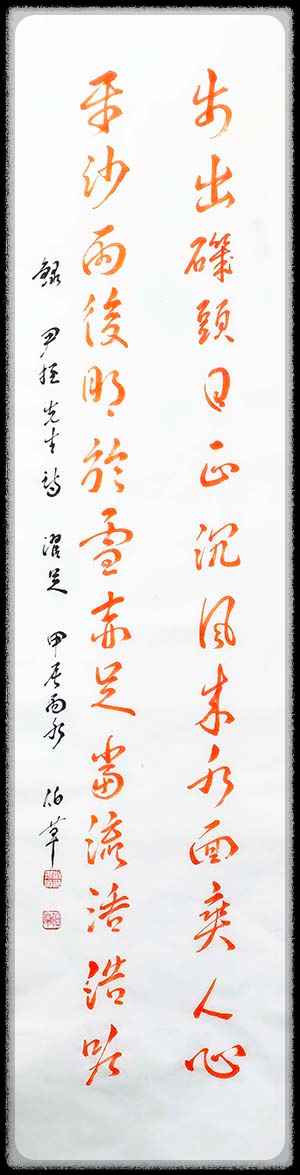 步出磯頭日正沉風來水面爽人心
平沙雨後明於雪赤足當流浩浩吟
錄 尹 先生詩 濯足 甲辰雨水 伯草